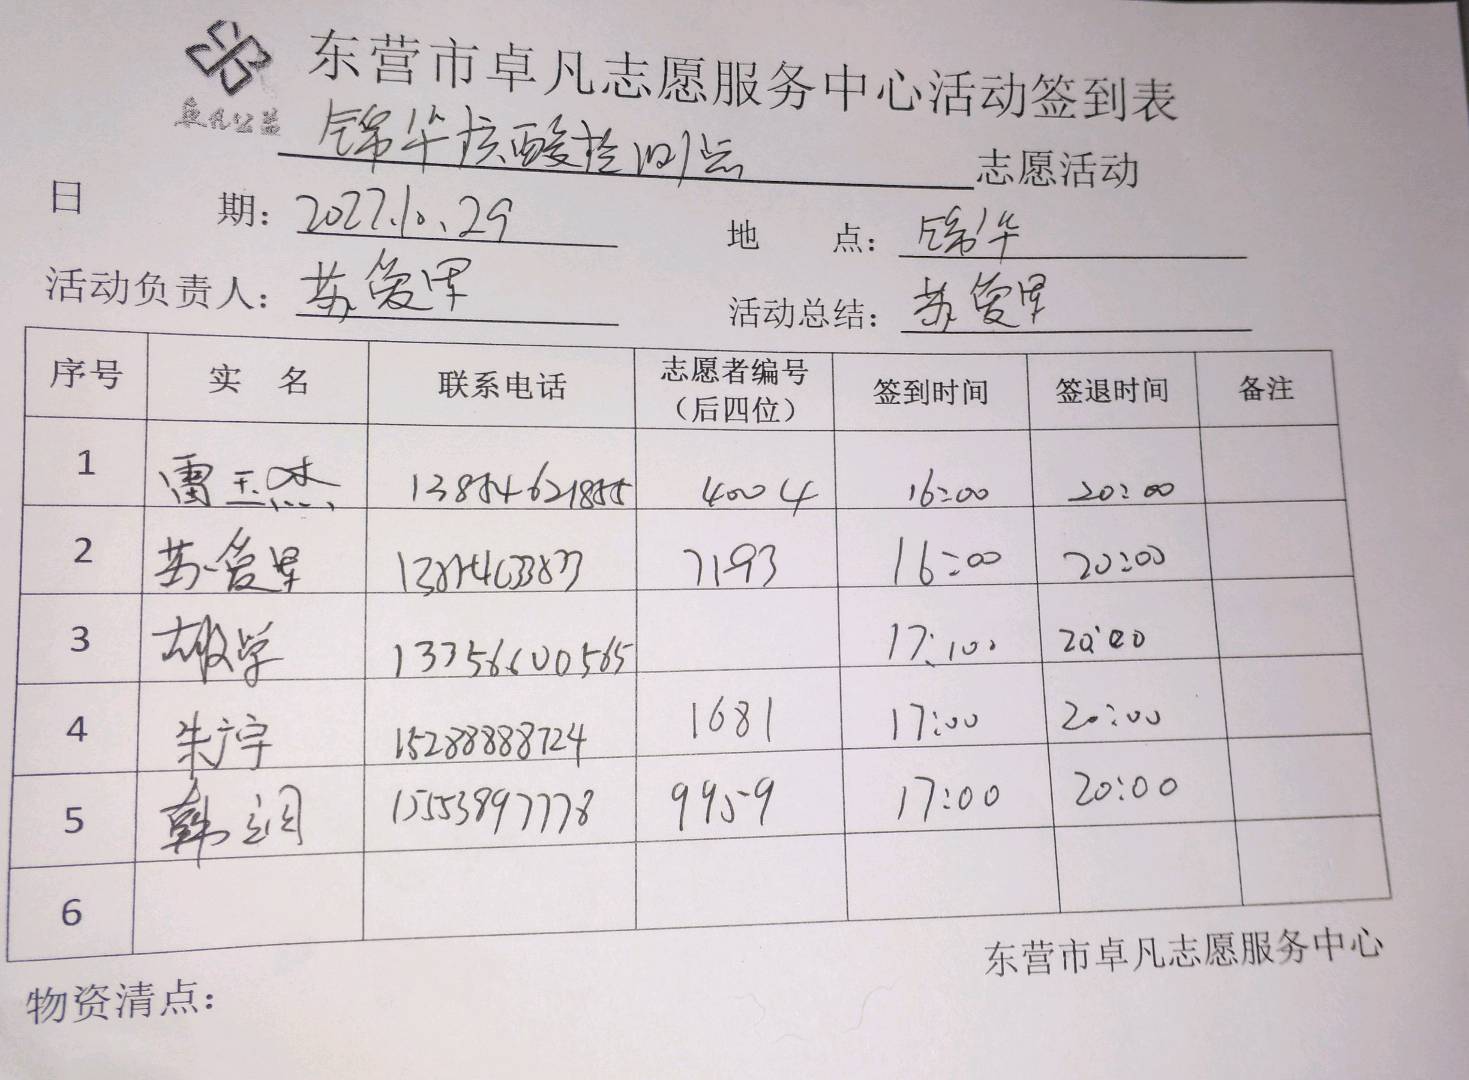 东营市卓凡志愿服务中心活动签到表
卓凡公益
锦华核酸检测点 志愿活动
日 期：2022.10.29 地 点：锦华
活动负责人：苏爱军 活动总结：苏爱军
序号 实 名 联系电话 志愿者编号（后四位） 签到时间 签退时间 备注
1 雷玉杰 13854621855 4004 16:00 20:00
2 苏爱军 7193 16:00 20:00
3 17:00 20:00
4 朱宇 15288888724 1681 17:00 20:00
5 韩润 15553897778 9959 17:00 20:00
6
东营市卓凡志愿服务中心
物资清点：